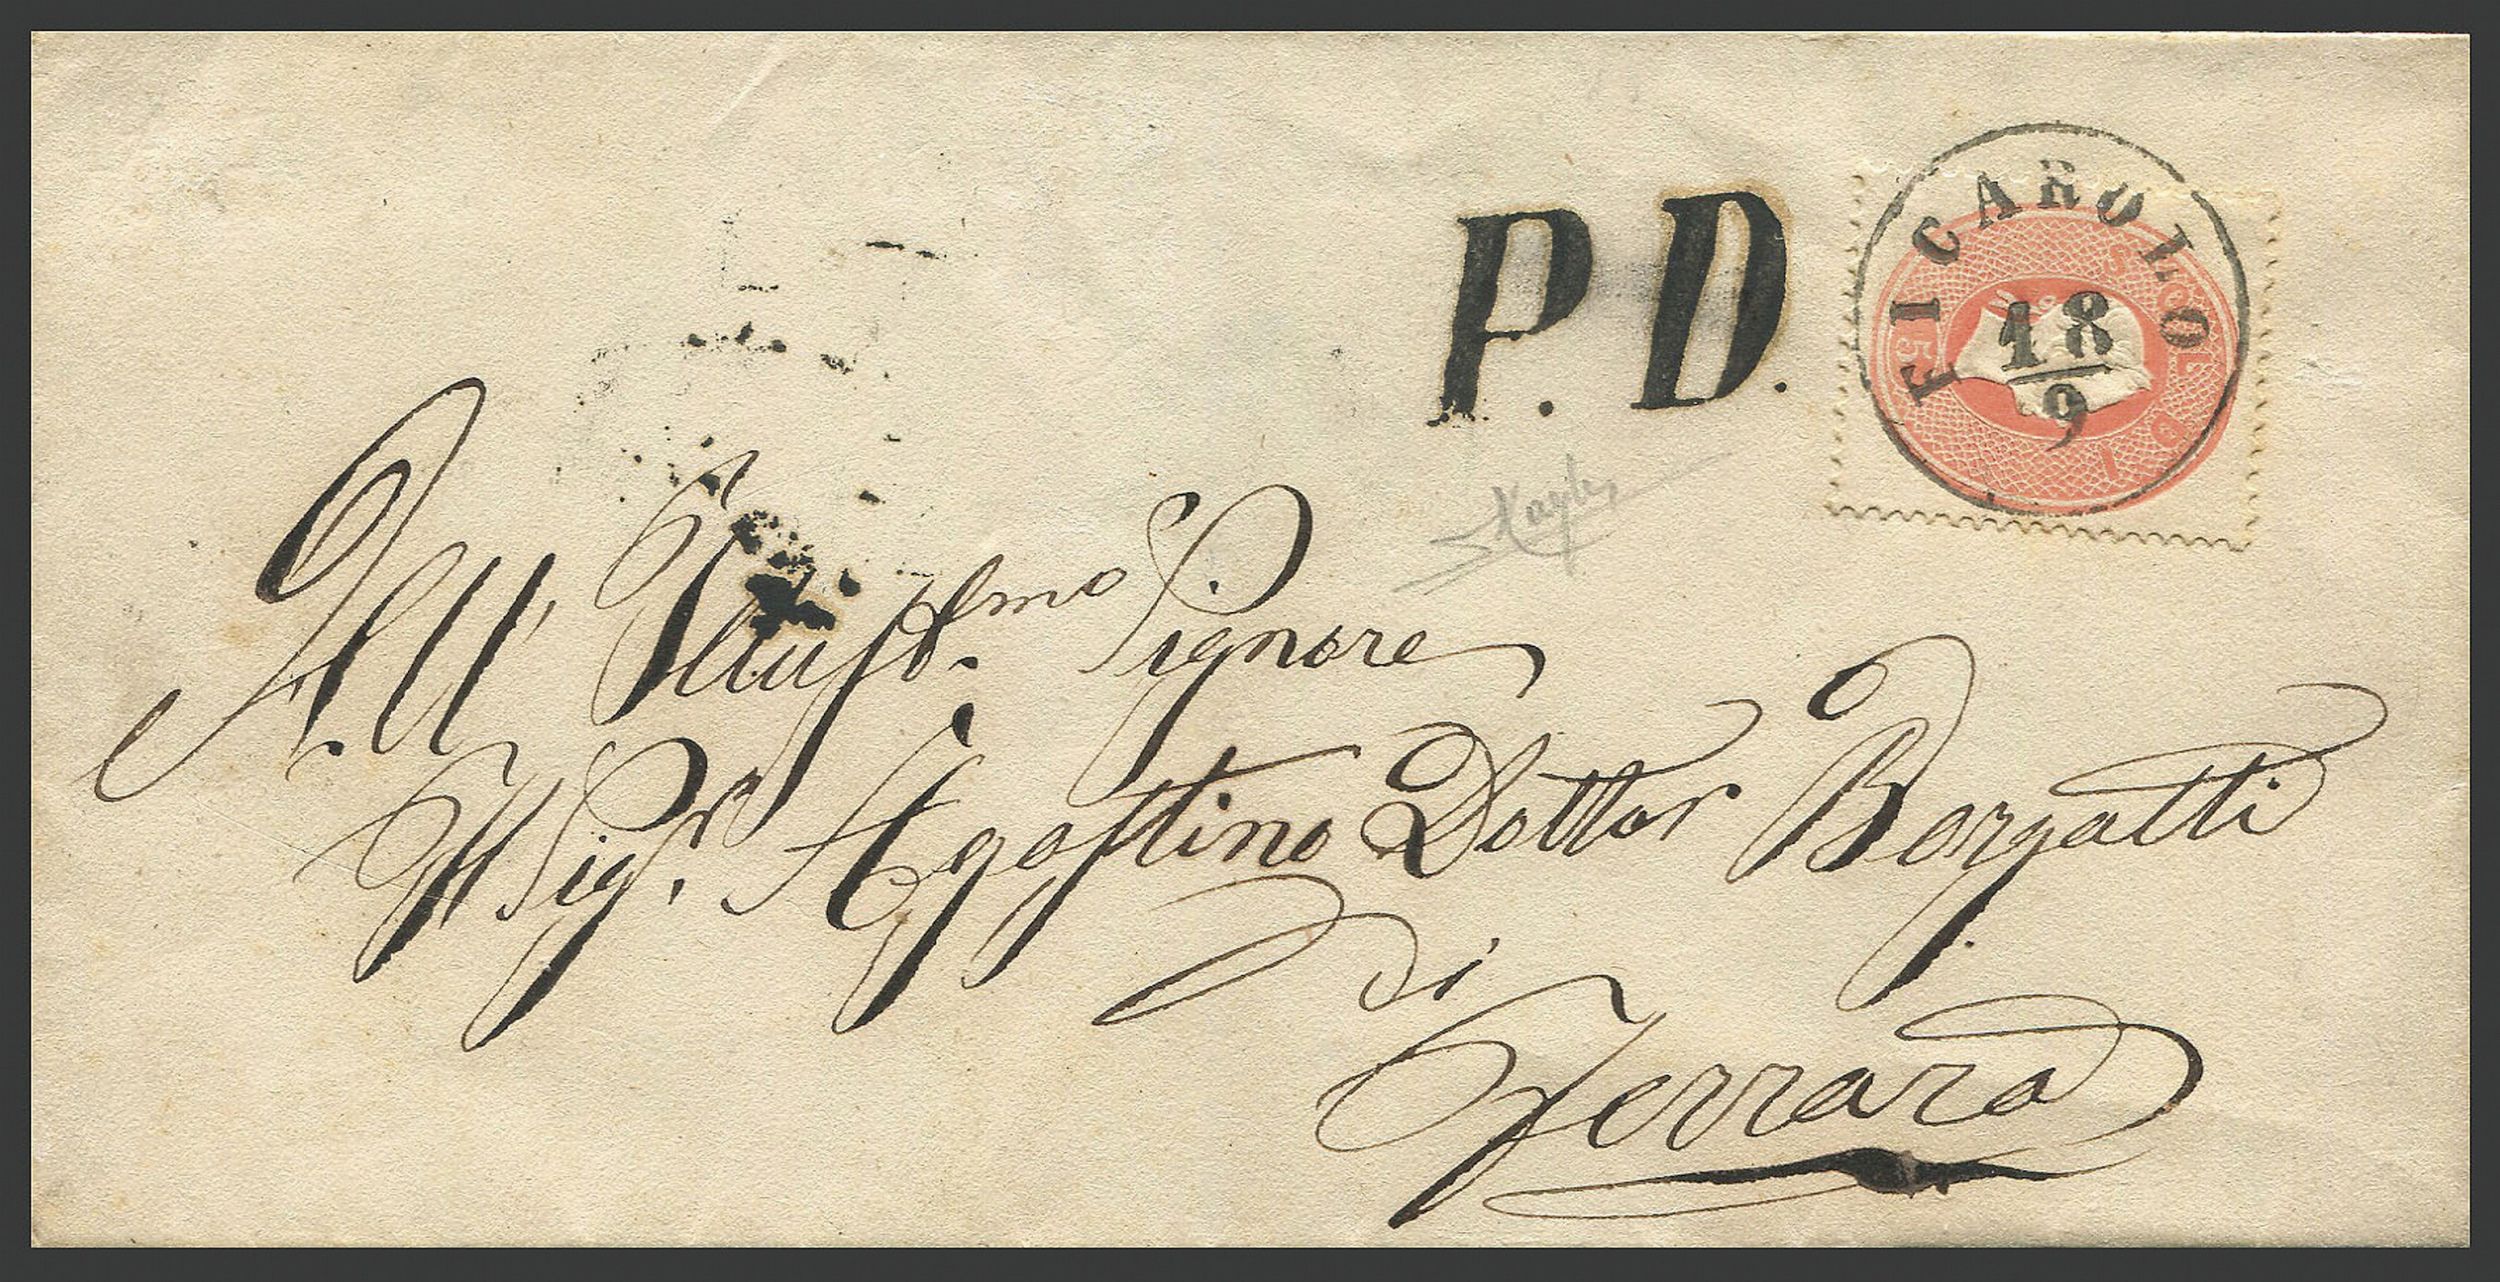 P. D.
FICAROLO
18/9
5 SOLDI 5
All' Illust.mo Signore
Il Sigr. Agostino Dottor Borgatti
di
Ferrara